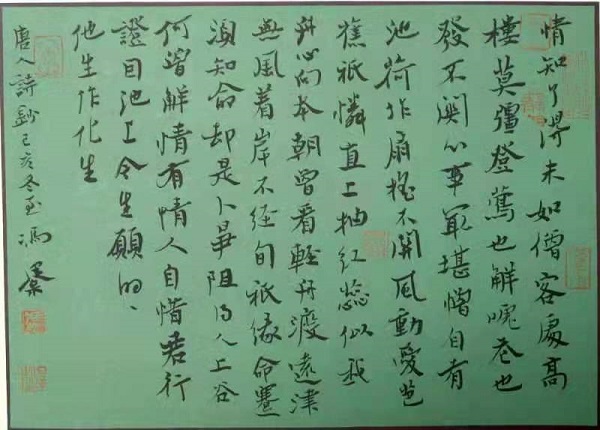 情知了得未如僧客處高
樓莫彊登鶯也解啼花也
發不關心事最堪憎自有
池荷作扇搖不關風動愛芭
蕉祇憐直上抽紅蕊似我
丹心向本朝曾看輕舟渡遠津
無風着岸不經旬祇緣命蹇
須知命却是卜爭阻得人上谷
何曾解情有情人自惜君行
證因池上今生願的、
他生作化生
唐人詩鈔己亥冬至馮